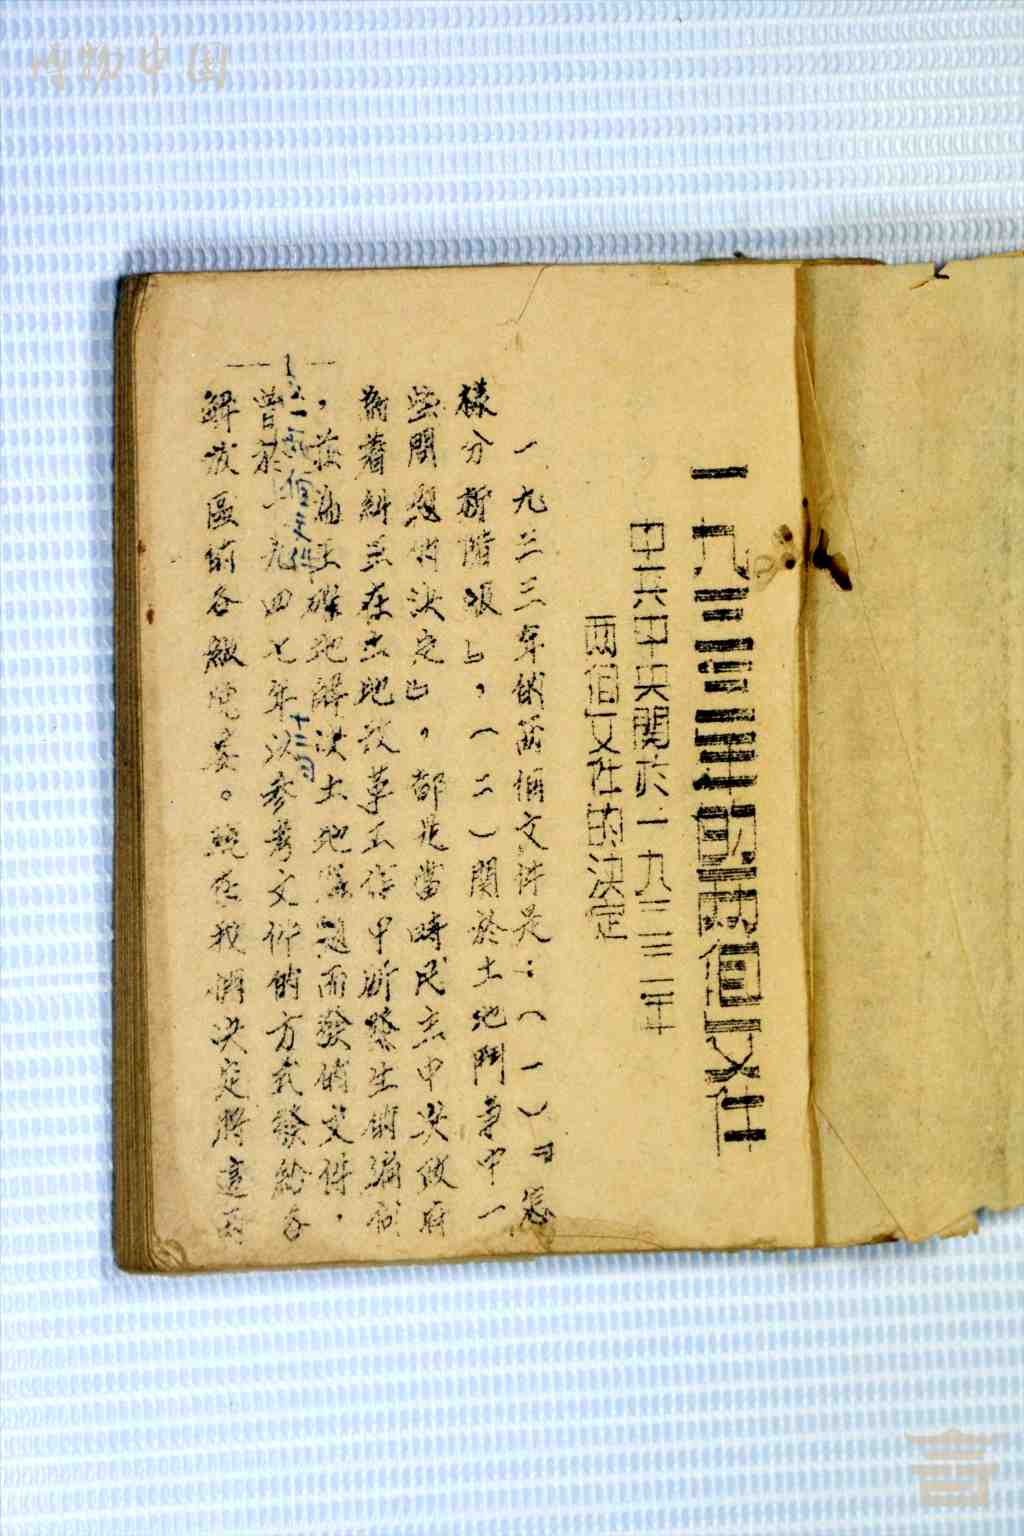 博物中国
一九三三年的兩個文件
中共中央關於一九三三年
兩個文件的決定
一九三三年的兩個文件是：（一）「怎
樣分析階級」，（二）關於土地鬥爭中一
些問題的決定」，都是當時民主中央政府
為着糾正在土地改革工作中所發生的偏向
，並為正確地解決土地問題而發的文件，
個文件
十二月
曾於一九四七年以參考文件的方式發給各
解放區的各級黨委。現在我們決定將這兩
— 1 —